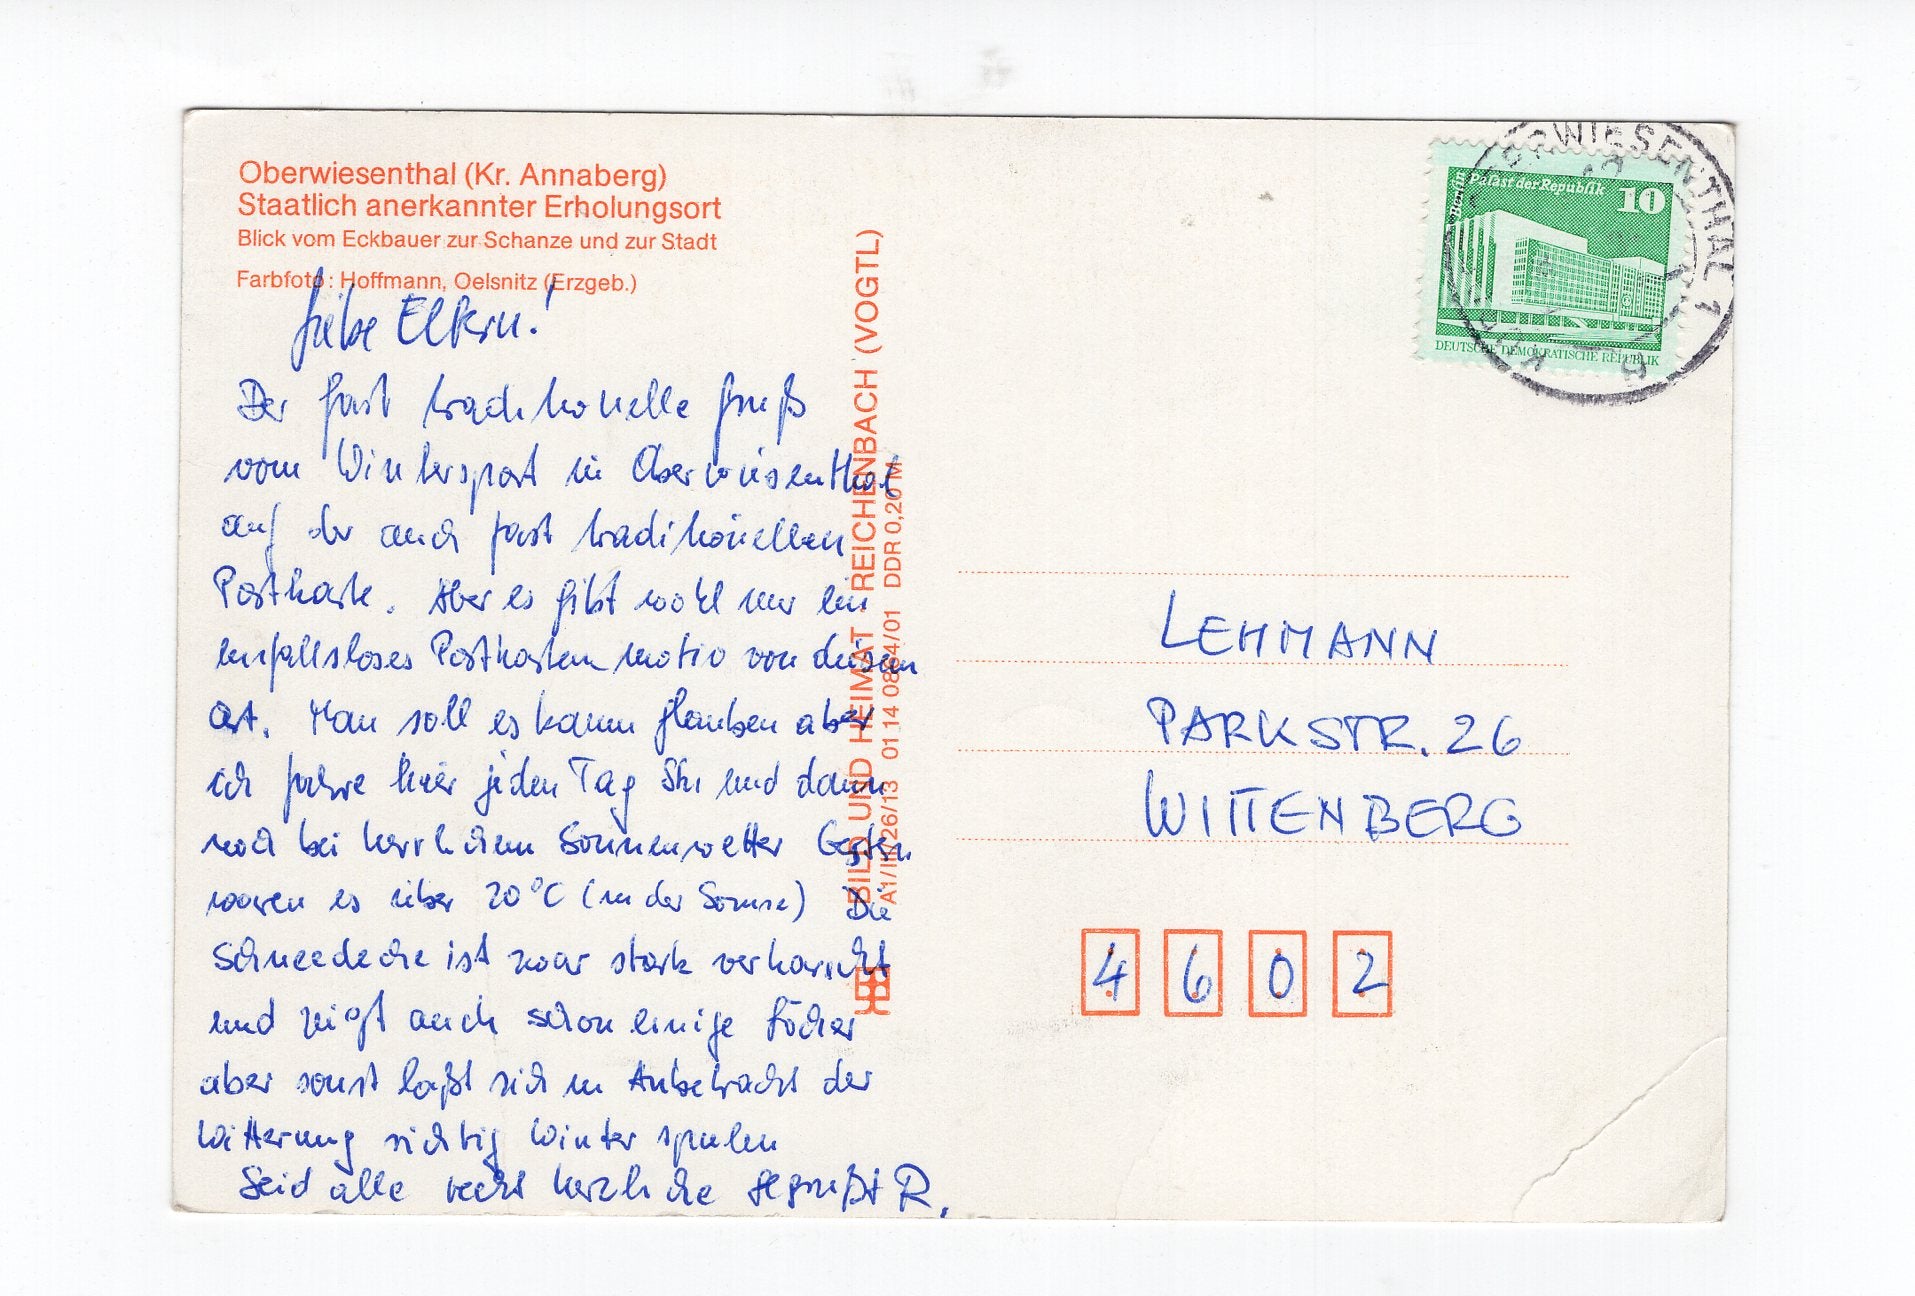 Oberwiesenthal (Kr. Annaberg)
Staatlich anerkannter Erholungsort
Blick vom Eckbauer zur Schanze und zur Stadt
Farbfoto: Hoffmann, Oelsnitz (Erzgeb.)
Liebe Eltern!
Der fast traditionelle Gruß
vom Wintersport in Oberwiesenthal
auf der auch fast traditionellen
Postkarte. Aber es gibt wohl nur ein
einfallsloses Postkartenmotiv von diesem
Ort. Man soll es kaum glauben aber
ich fahre hier jeden Tag Ski und dann
noch bei herrlichem Sonnenwetter Gestern
waren es über 20°C (in der Sonne) Die
Schneedecke ist zwar stark verharscht
und zeigt auch schon einige Löcher
aber sonst läßt sich in Anbetracht der
Witterung richtig Winter spielen
Seid alle recht herzliche gegrüßt R.
BILD UND HEIMAT · REICHENBACH (VOGTL)
A1/III/26/13 01 14 0864/01 DDR 0,20 M
Berlin Palast der Republik 10
DEUTSCHE DEMOKRATISCHE REPUBLIK
OBERWIESENTHAL 1
LEHMANN
PARKSTR. 26
WITTENBERG
4602